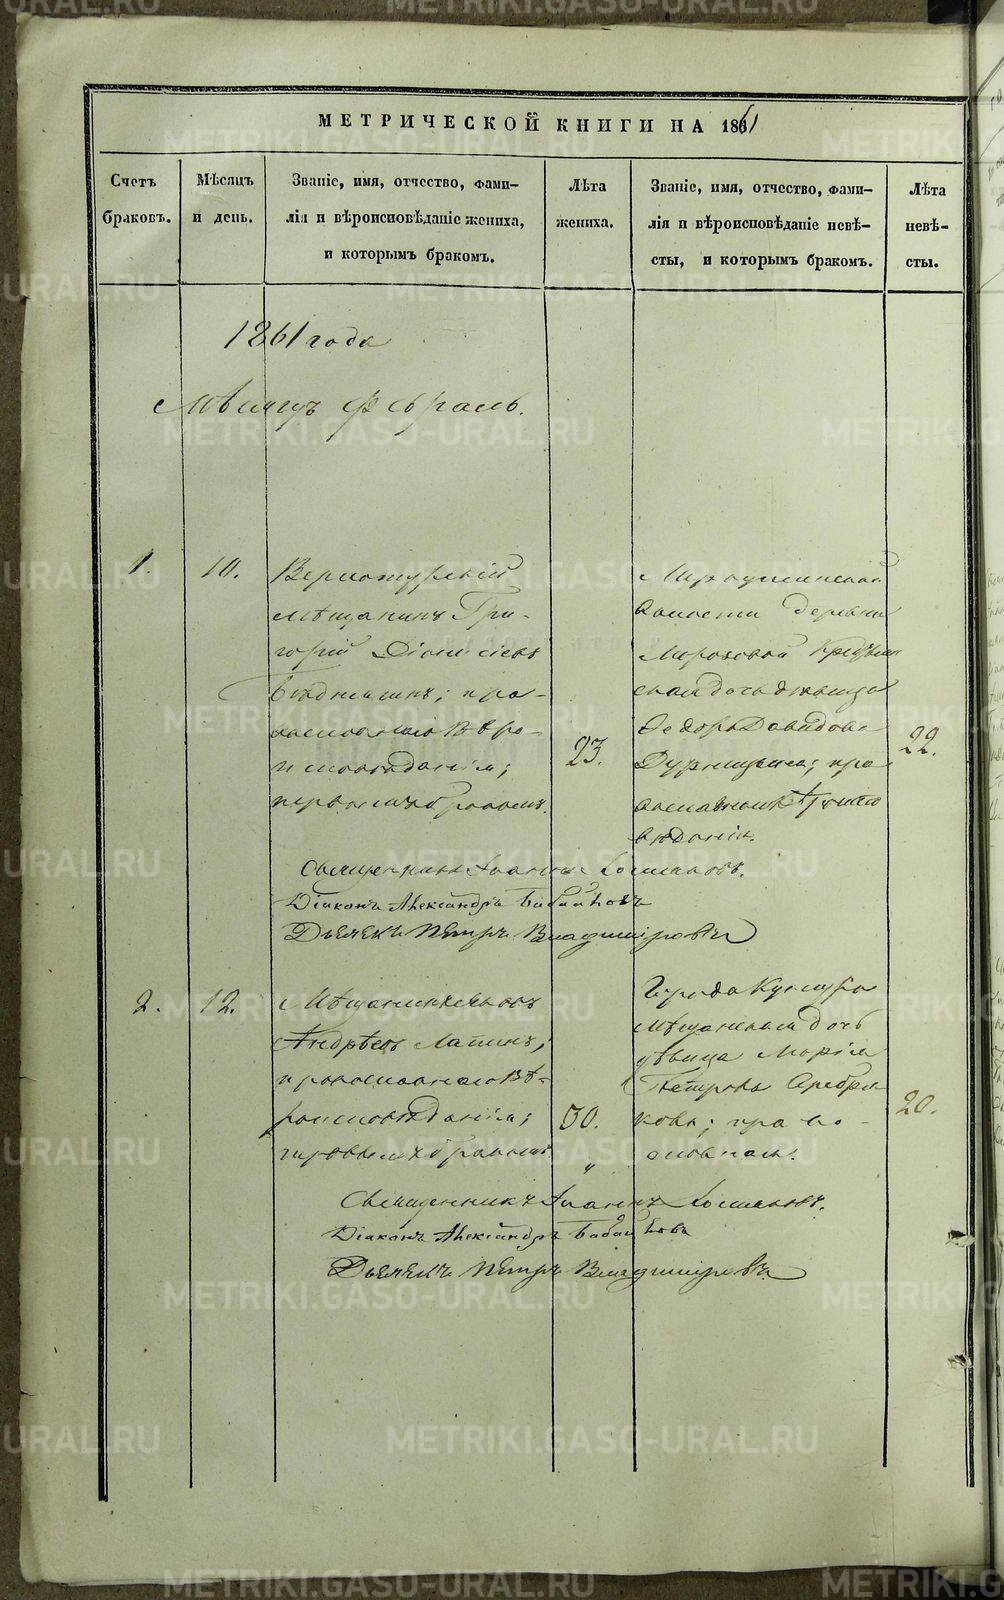 МЕТРИЧЕСКОЙ КНИГИ НА 1861
Счетъ
браковъ.
Мѣсяцъ
и день.
Званіе, имя, отчество, фами-
лія и вѣроисповѣданіе жениха,
и которымъ бракомъ.
Лѣта
жениха.
Званіе, имя, отчество, фами-
лія и вѣроисповѣданіе невѣ-
сты, и которымъ бракомъ.
Лѣта
невѣ-
сты.
1861 года
Мѣсяцъ Февраль.
1.
10.
Верхотурскій
Мѣщанинъ Гри-
горій Діонисіевъ
православнаго Вѣро-
исповѣданія;
первымъ бракомъ.
23.
волости деревни
Морозовой Крестьян
ская дочь дѣвица
Ѳедора Давидова
пра
вославнаго
вѣданія.
22.
Священникъ Іоаннъ
Діаконъ Александръ Бабайловъ
Дьячекъ Петръ Владиміровъ
2.
12.
Мѣщанинъ
Андрѣевъ Лапинъ;
православнаго Вѣ-
роисповѣданія;
первымъ бракомъ.
30.
Города Кунгура
Мѣщанская дочь
дѣвица Марія
Петрова Серебря
кова; право-
славная.
20.
Священникъ Іоаннъ
Діаконъ Александръ Бабайловъ
Дьячекъ Петръ Владиміровъ.
METRIKI.GASO-URAL.RU